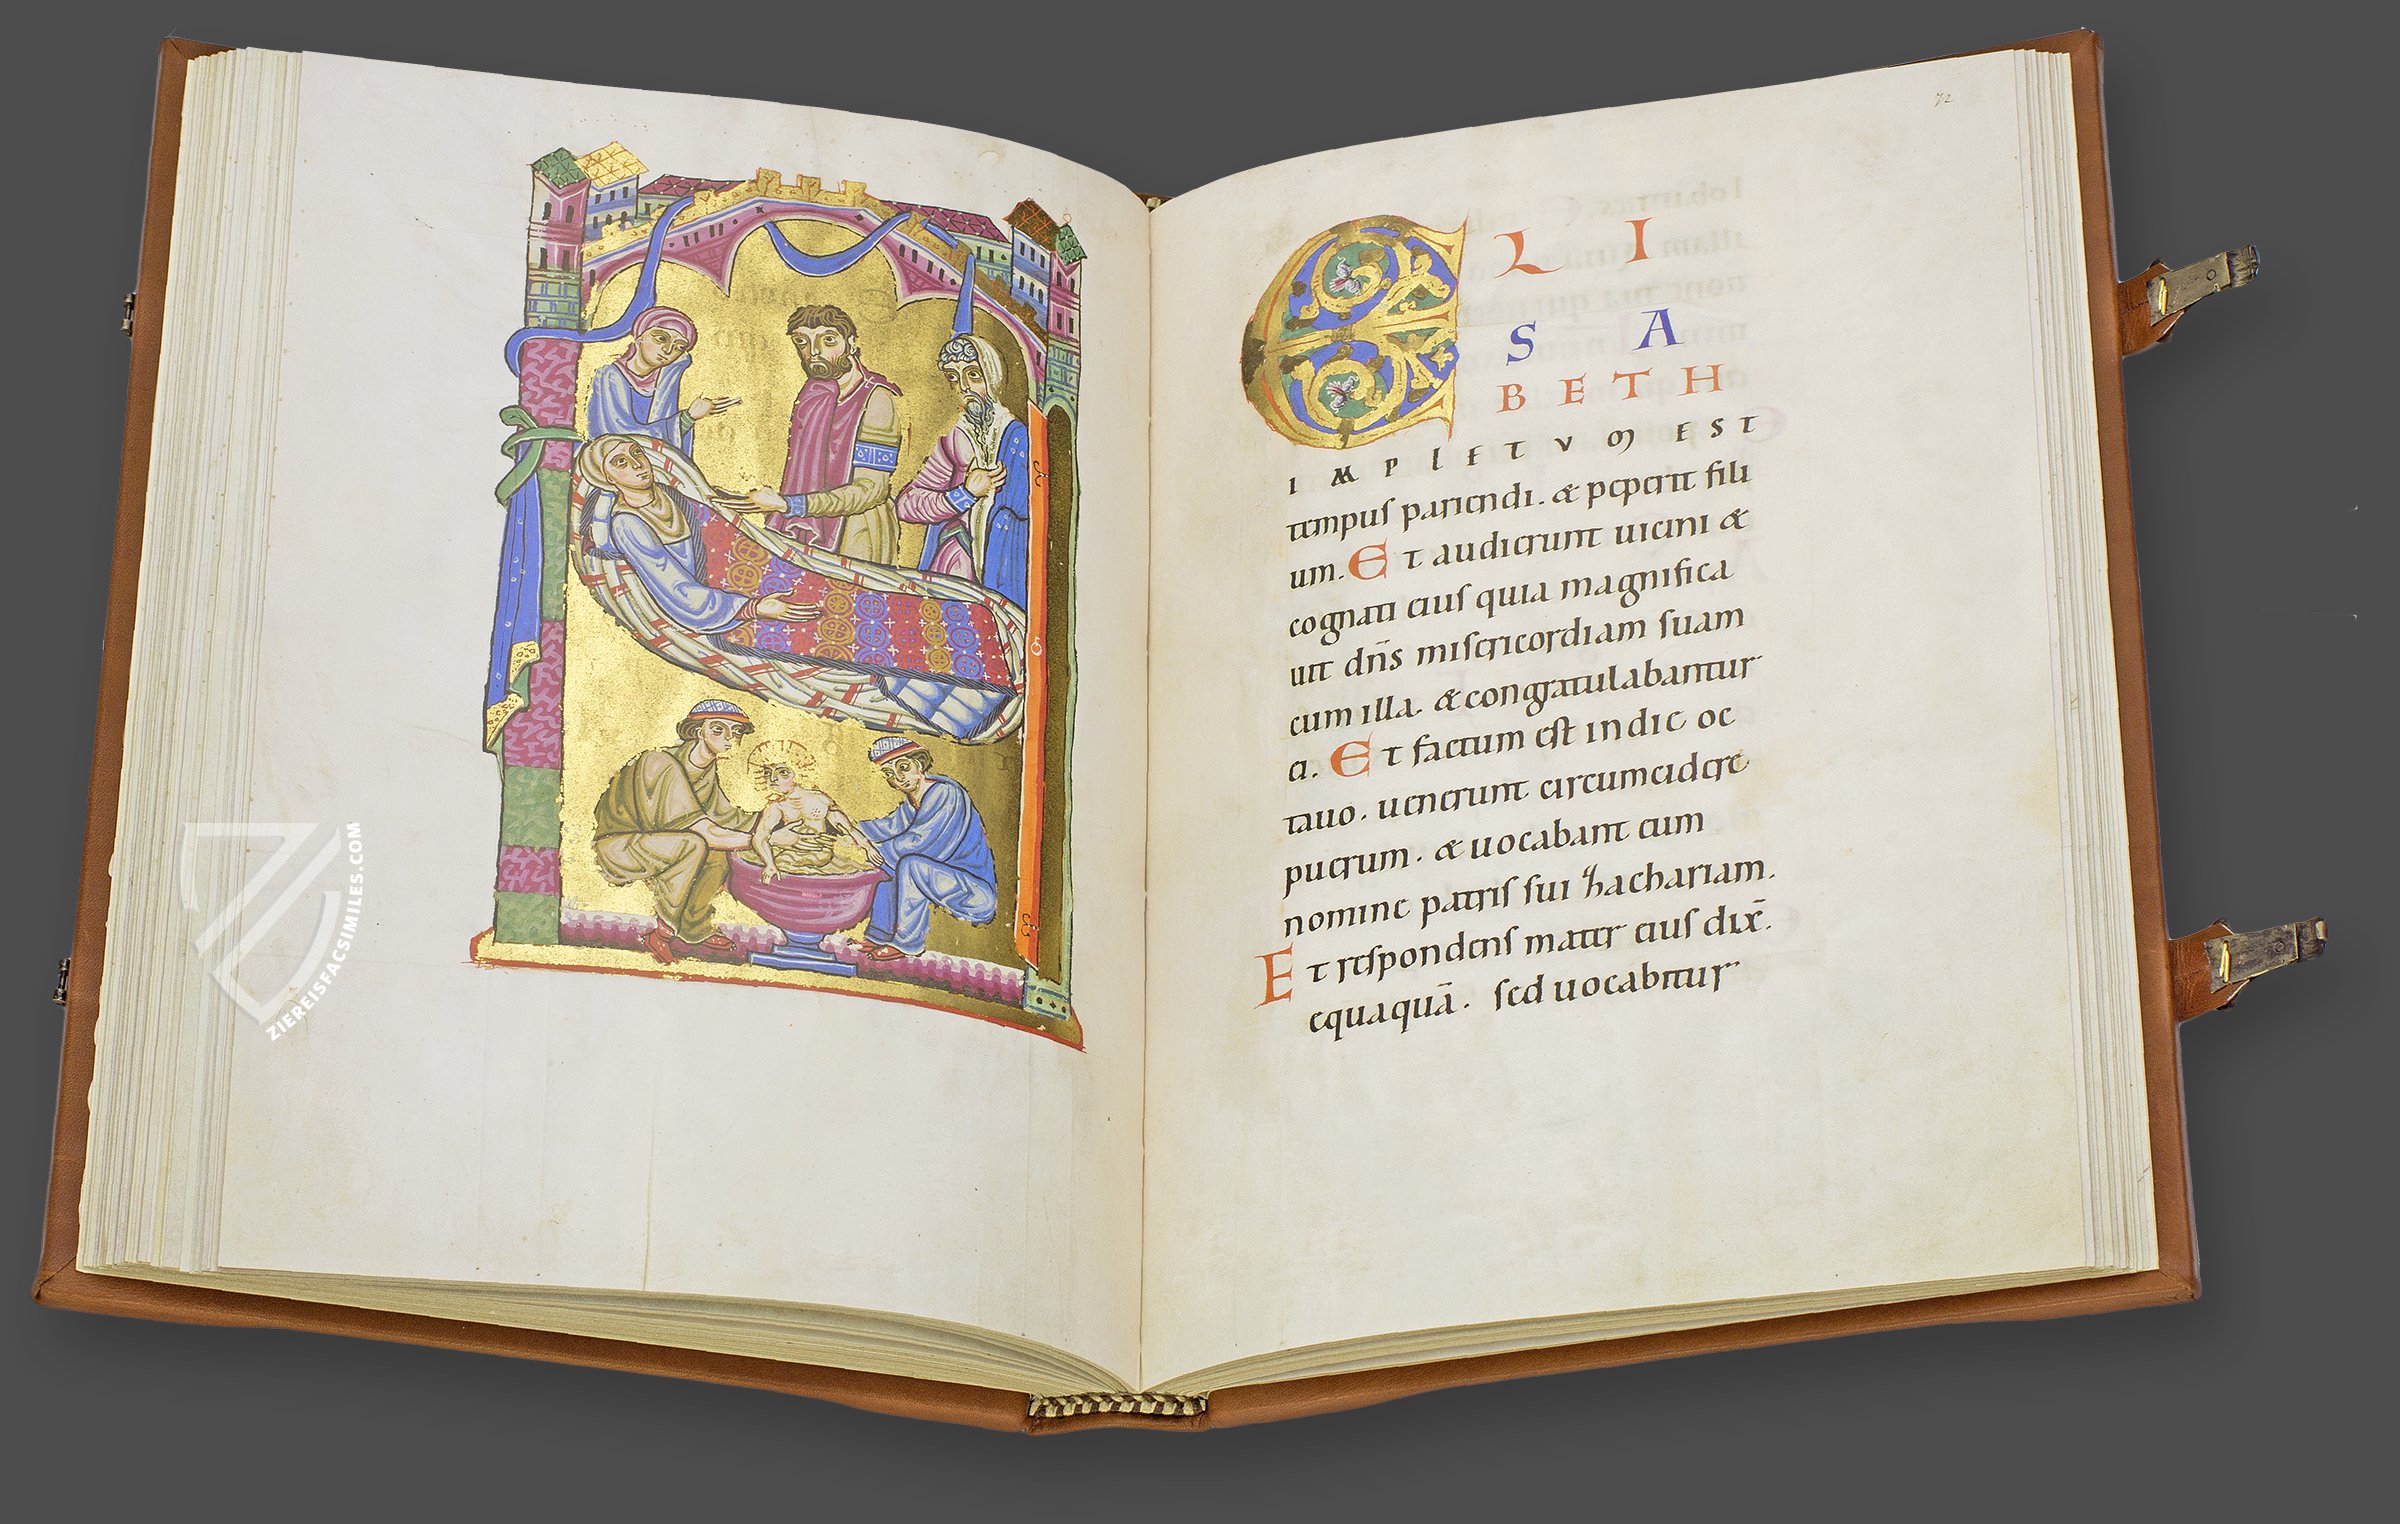 ZIEREISFACSIMILES.COM
72
ELI
SA
BETH
IMPLETUM EST
tempuſ pariendi. & peperit fili
um. Et audierunt uicini &
cognati eiuſ quia magnifica
uit dn̄s miſericordiam ſuam
cum illa. & congratulabantur
ei. Et factum eſt in die oc
tauo. uenerunt circumcidere
puerum. & uocabant eum
nomine patriſ ſui Zachariam.
Et reſpondenſ mater eiuſ dix̄.
equaquā. ſed uocabitur